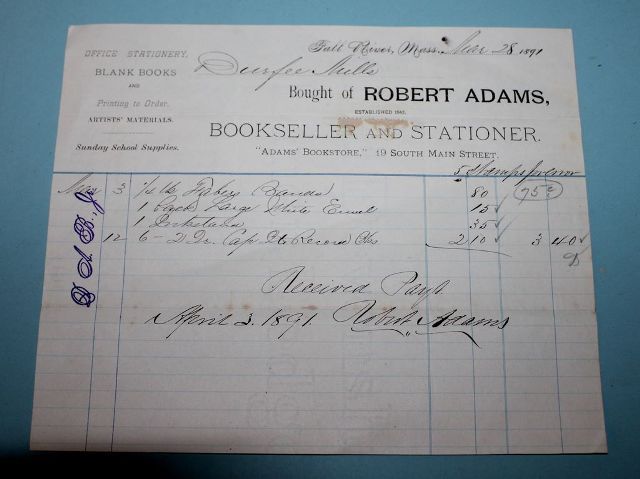 OFFICE STATIONERY,
BLANK BOOKS
AND
Printing to Order.
ARTISTS' MATERIALS.
Sunday School Supplies.
Fall River, Mass. Mar 28 1891
Durfee Mills
Bought of ROBERT ADAMS,
ESTABLISHED 1842.
BOOKSELLER AND STATIONER.
"ADAMS' BOOKSTORE," 19 SOUTH MAIN STREET.
5 Stamps
Mar 3 1/4 lb Bands 80 75¢
1 Pack Large White 15
1 35
12 6 - 2 Qr. Cap Record 2 10 3 40
D. A. B. Jr
Received Payt
April 3. 1891. Robert Adams